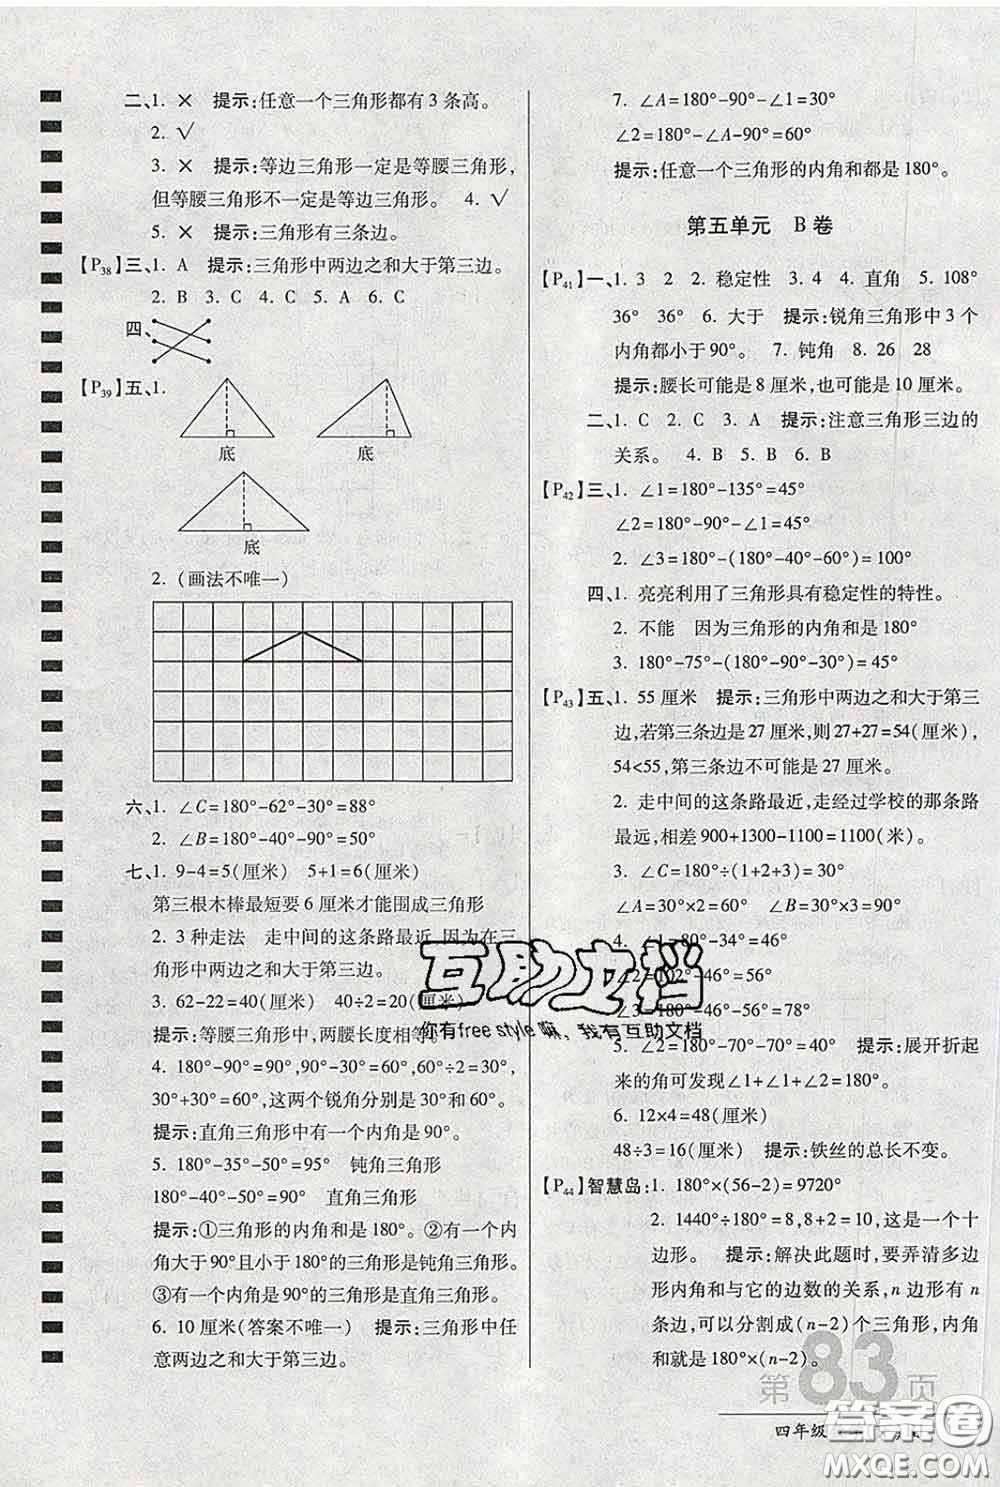 二、1. ×　提示:任意一个三角形都有 3 条高。
2. √
3. ×　提示:等边三角形一定是等腰三角形,
但等腰三角形不一定是等边三角形。　4. √
5. ×　提示:三角形有三条边。
【P38】三、1. A　提示:三角形中两边之和大于第三边。
2. B　3. B　4. C　5. A　6. C
四、
【P39】五、1.
底　底
底
2. (画法不唯一)
六、1. ∠C=180°-62°-30°=88°
2. ∠B=180°-40°-90°=50°
七、1. 9-4=5(厘米)　5+1=6(厘米)
第三根木棒最短要 6 厘米才能围成三角形
2. 3 种走法　走中间的这条路最近,因为在三
角形中两边之和大于第三边。
3. 62-22=40(厘米)　40÷2=20(厘米)
提示:等腰三角形中,两腰长度相等。
4. 180°-90°=90°,90°-30°=60°,60°÷2=30°,
30°+30°=60°,这两个锐角分别是30°和60°。
提示:直角三角形中有一个内角是 90°。
5. 180°-35°-50°=95°　钝角三角形
180°-40°-50°=90°　直角三角形
提示:①三角形的内角和是180°。②有一个内
角大于 90°且小于 180°的三角形是钝角三角形。
③有一个内角是90°的三角形是直角三角形。
6. 10 厘米(答案不唯一)　提示:三角形中任
意两边之和大于第三边。
7. ∠A=180°-90°-∠1=30°
∠2=180°-∠A-90°=60°
提示:任意一个三角形的内角和都是 180°。
第五单元　B 卷
【P41】一、1. 3　2　2. 稳定性　3. 4　4. 直角　5. 108°
36°　36°　6. 大于　提示:锐角三角形中 3 个
内角都小于90°。　7. 钝角　8. 26　28
提示:腰长可能是 8 厘米,也可能是 10 厘米。
二、1. C　2. C　3. A　提示:注意三角形三边的
关系。　4. B　5. B　6. B
【P42】三、1. ∠1=180°-135°=45°
∠2=180°-90°-∠1=45°
2. ∠3=180°-(180°-40°-60°)=100°
四、1. 亮亮利用了三角形具有稳定性的特性。
2. 不能　因为三角形的内角和是 180°
3. 180°-75°-(180°-90°-30°)=45°
【P43】五、1. 55 厘米　提示:三角形中两边之和大于第三
边,若第三条边是 27 厘米,则 27+27=54(厘米),
54<55,第三条边不可能是 27 厘米。
2. 走中间的这条路最近,走经过学校的那条路
最远,相差 900+1300-1100=1100(米)。
3. ∠C=180°÷(1+2+3)=30°
∠A=30°×2=60°　∠B=30°×3=90°
4. ∠1=80°-34°=46°
∠2=102°-46°=56°
∠3=180°-46°-56°=78°
5. ∠2=180°-70°-70°=40°　提示:展开折起
来的角可发现∠1+∠1+∠2=180°。
6. 12×4=48(厘米)
48÷3=16(厘米)　提示:铁丝的总长不变。
【P44】智慧岛:1. 180°×(56-2)=9720°
2. 1440°÷180°=8,8+2=10,这是一个十
边形。　提示:解决此题时,要弄清多边
形内角和与它的边数的关系,n 边形有 n
条边,可以分割成(n-2)个三角形,内角
和就是 180°×(n-2)。
互助文档
你有free style 嘛，我有互助文档
第83页
四年级
答案圈
MXQE.COM